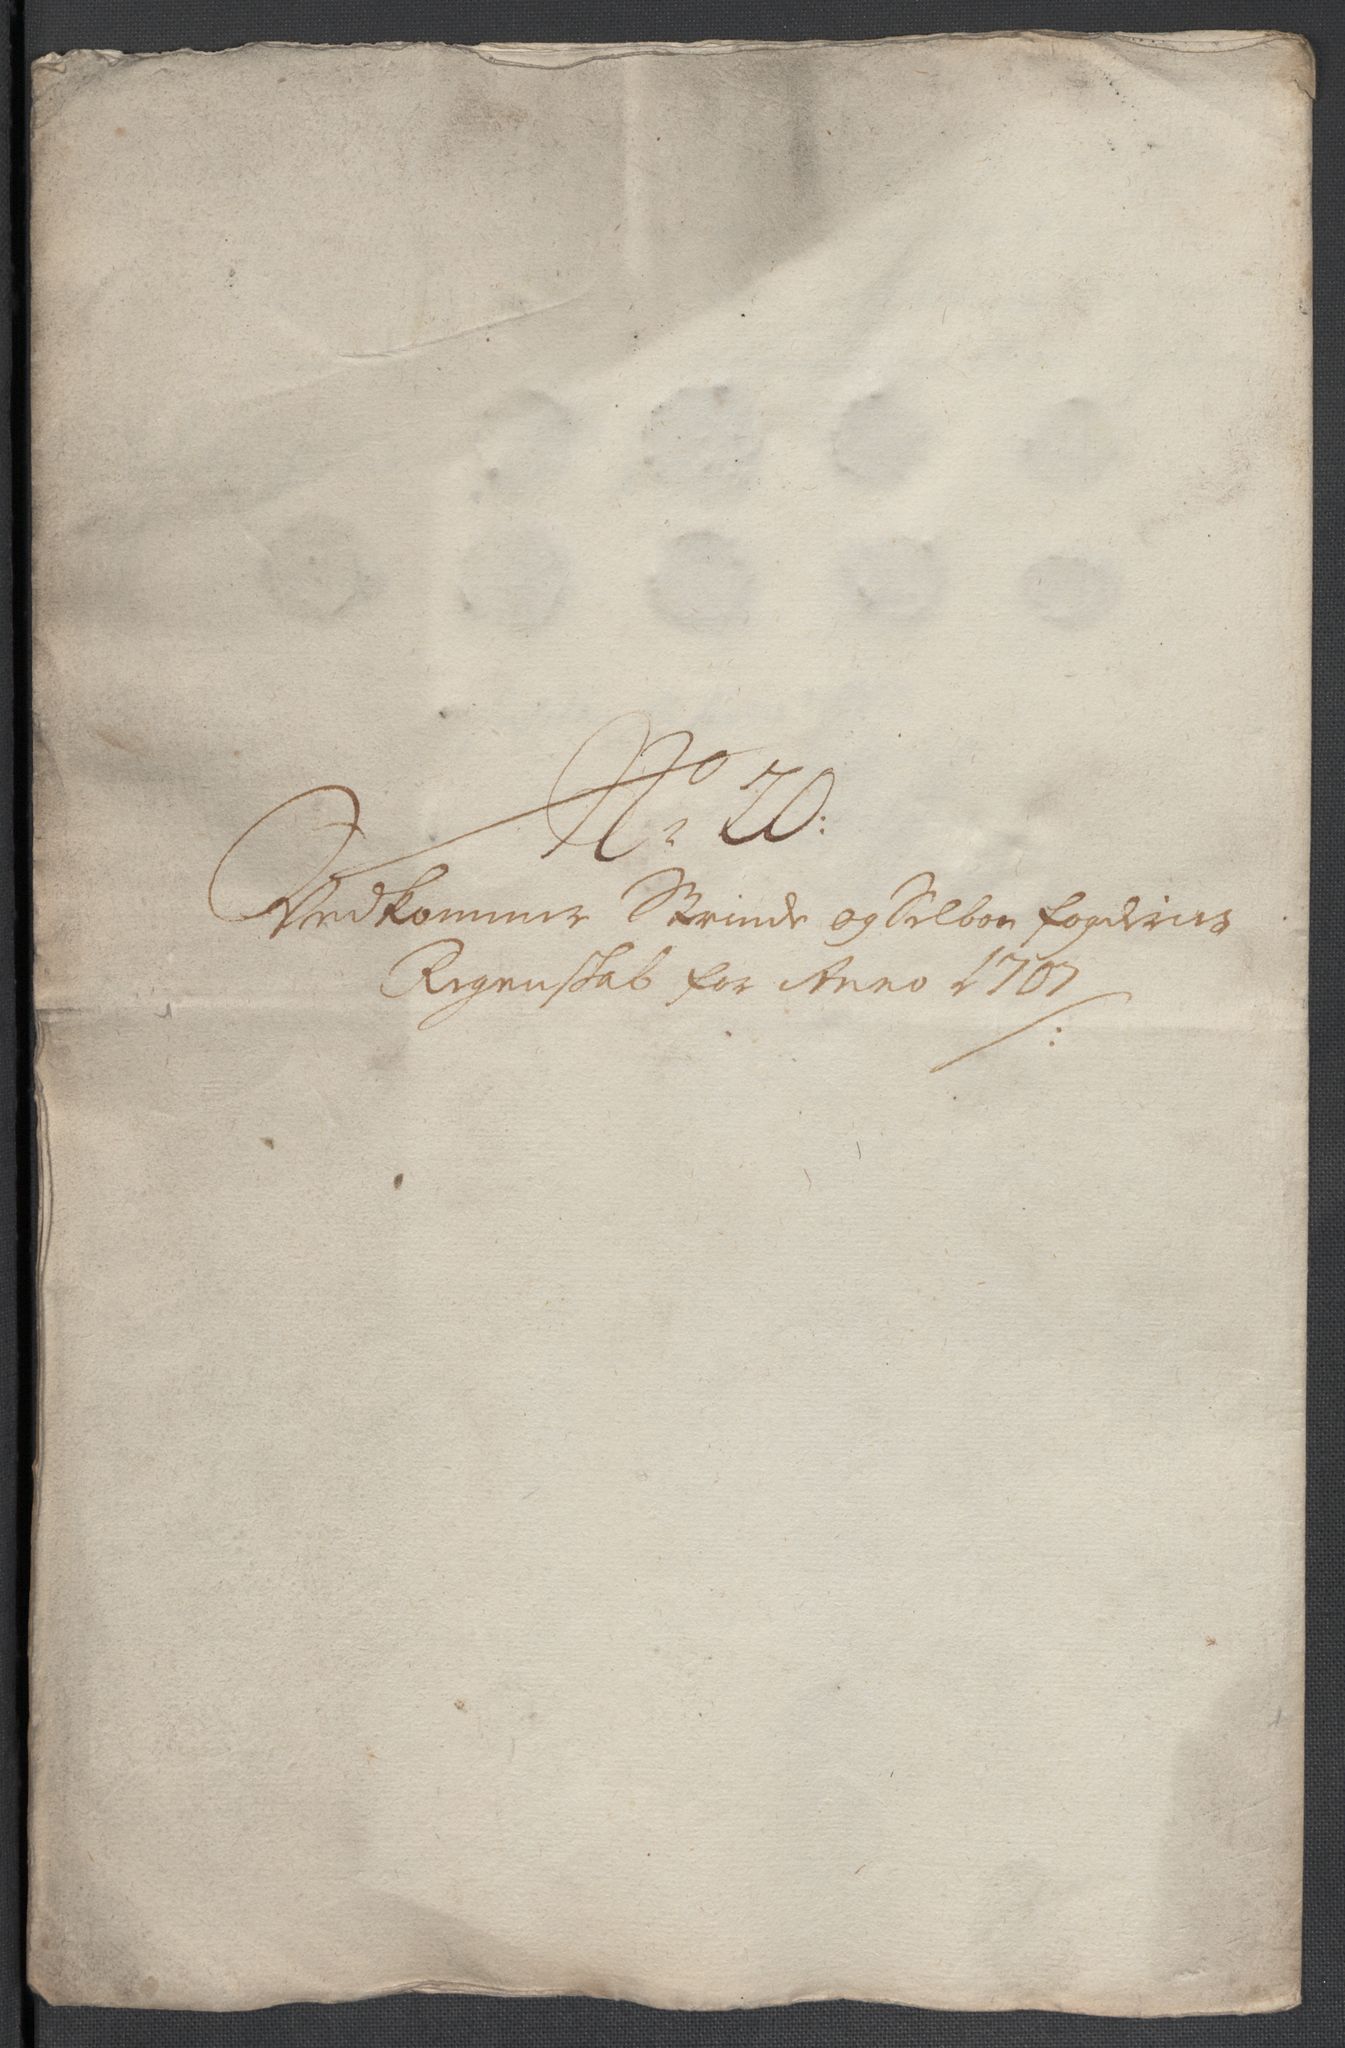 No 20:
Vedkommer Strinde og Selboe fogderies
Regenskab for Anno 1707